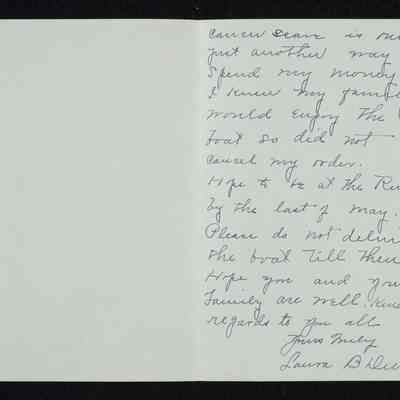 Cancer scare is
just another way
spend my money
I knew my
would enjoy the
boat so did not
cancel my order.
Hope to be at the
by the last of May.
Please do not
the boat till then
Hope you and
Family are well.
regards to you all
Yours Truly
Laura B